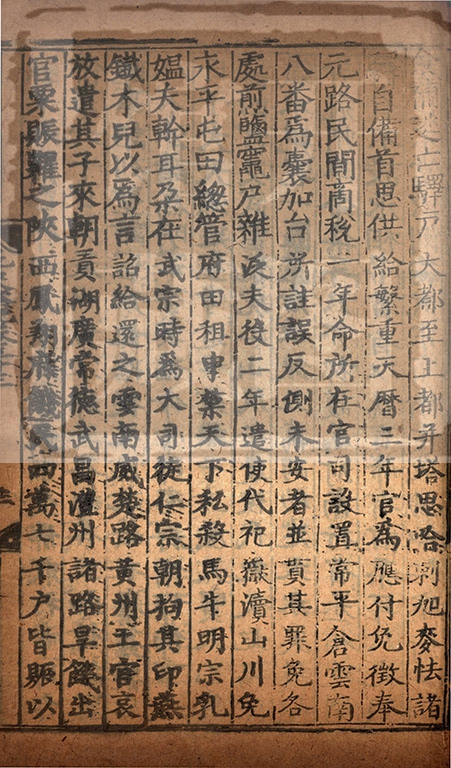 補逃亡驛戸大都至上都并塔思哈剌旭麥怯諸
自備首思供給繁重天曆三年官爲應付免徵奉
元路民間商稅一年命所在官司設置常平倉雲南
八番爲囊加台所詿誤反側未安者並貰其罪免各
處煎鹽竈户雜泛夫役二年遣使代祀嶽瀆山川免
永平屯田總管府田租申禁天下私殺馬牛明宗乳
媪夫斡耳朶在武宗時爲大司徒仁宗朝拘其印燕
鐵木兒以爲言詔給還之雲南威楚路黄州土官哀
放遣其子來朝貢湖廣常德武昌澧州諸路旱饑出
官粟賑糶之陜西鳳翔府饑民四萬七千户皆賑以